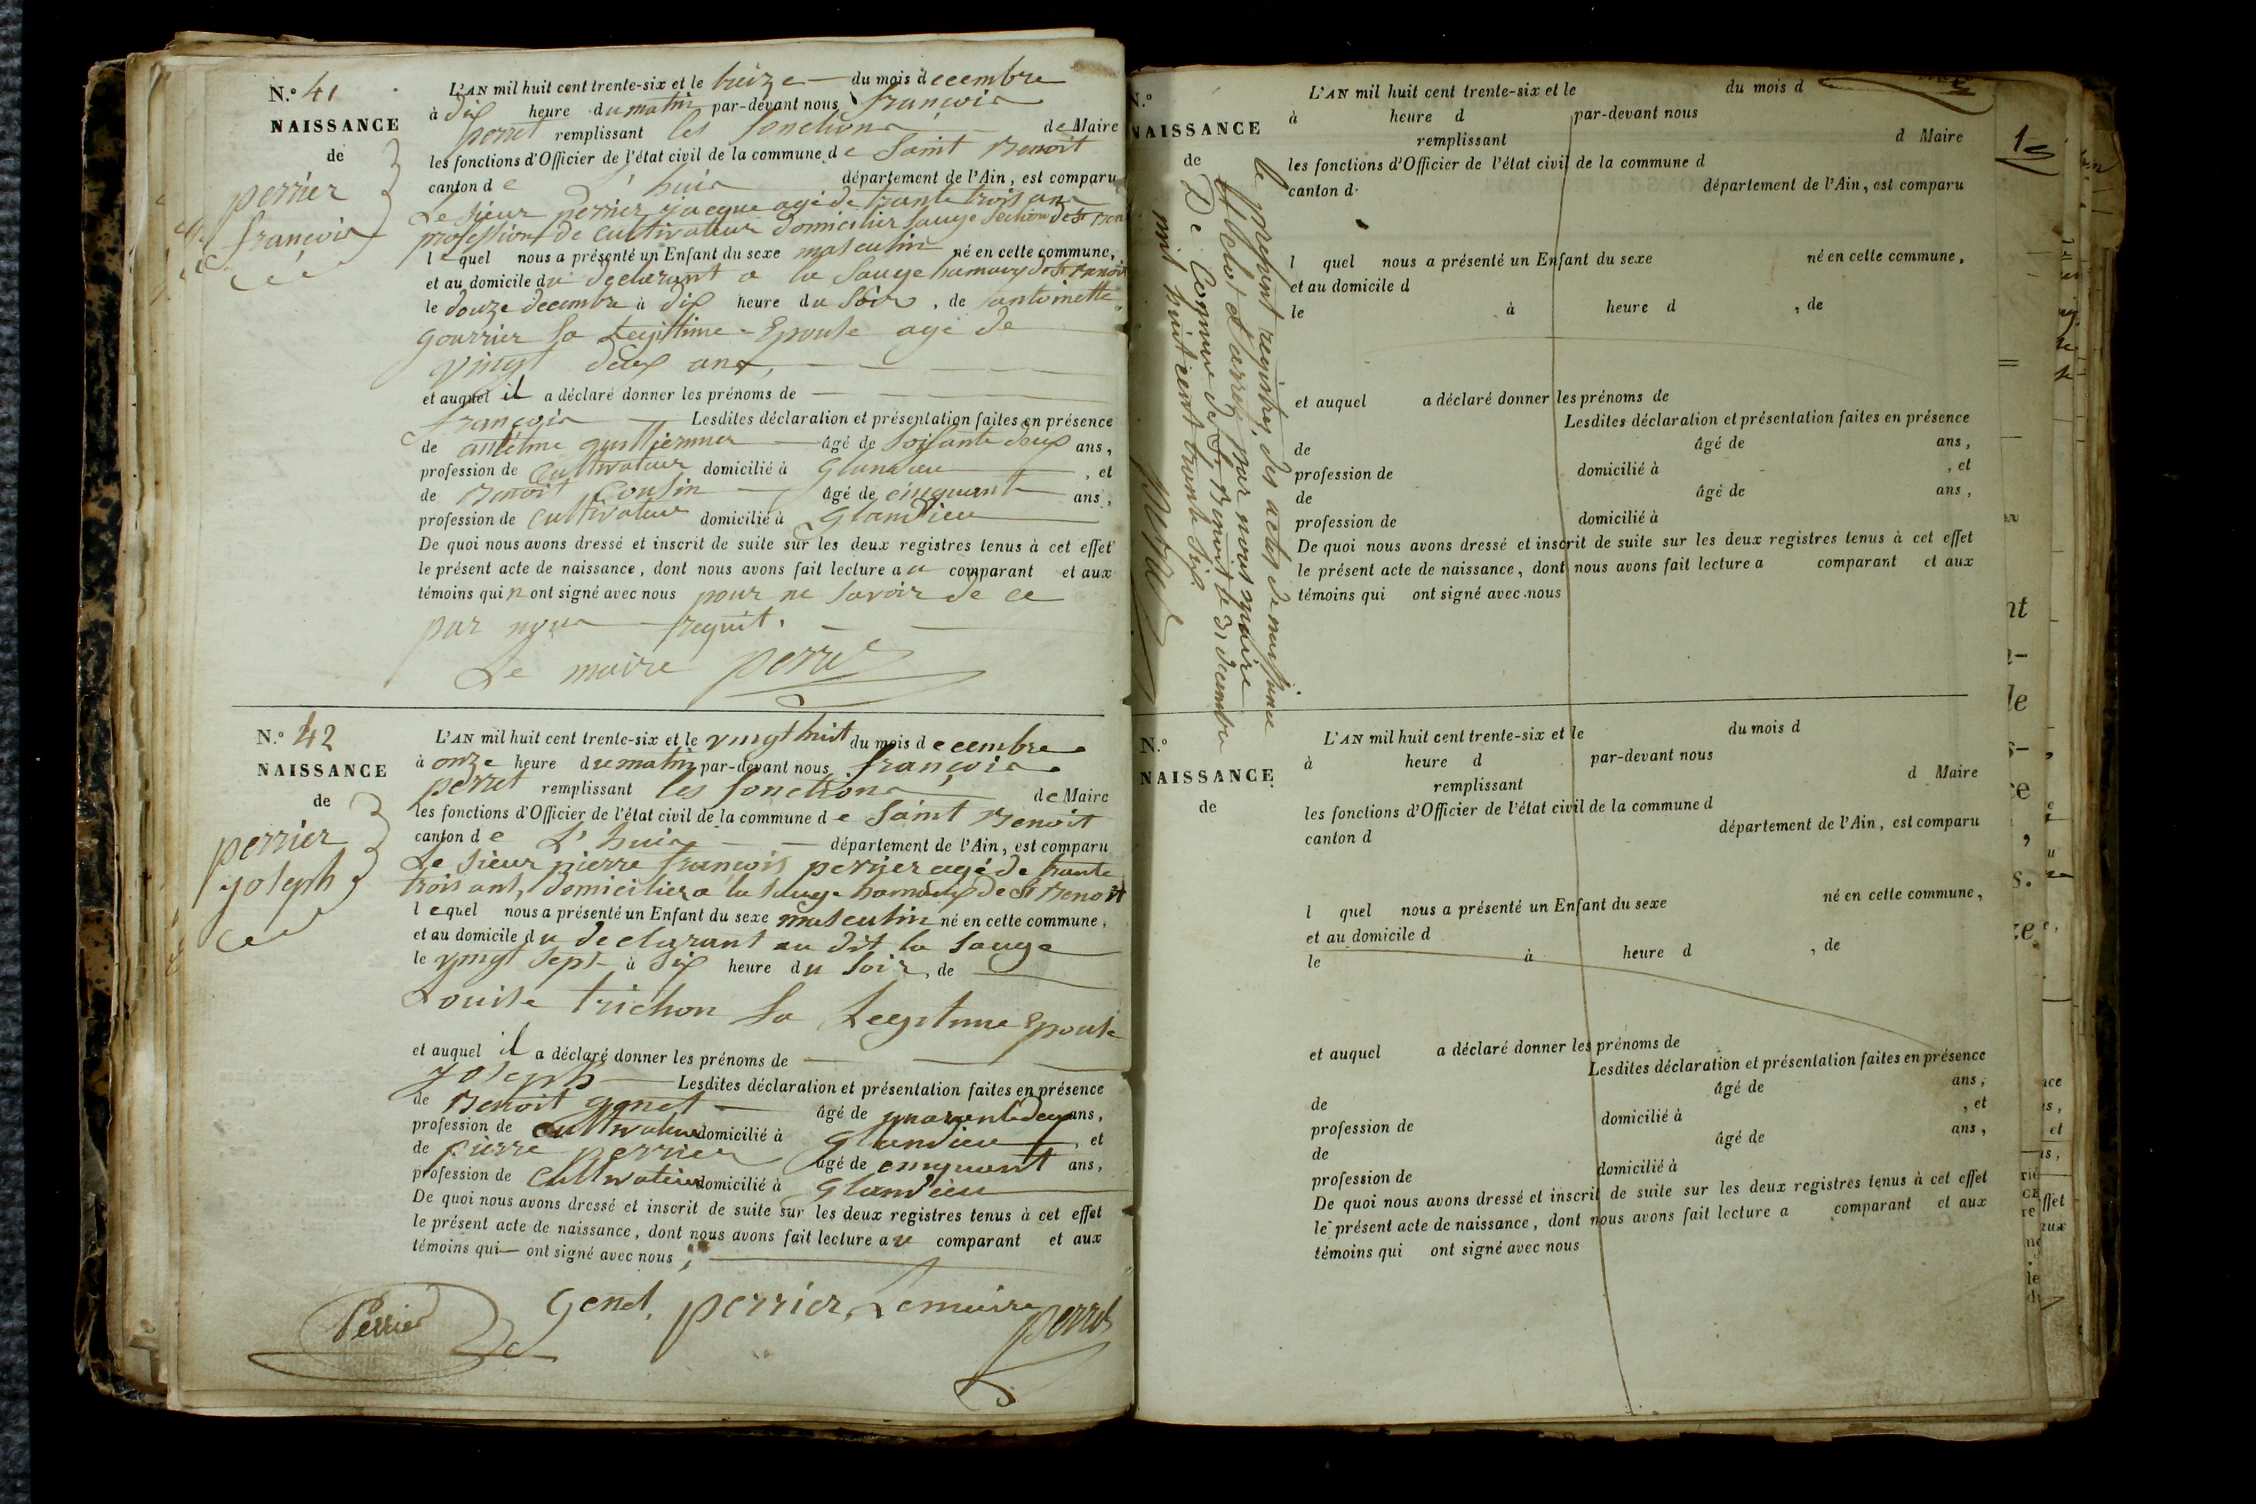 N.° 41
NAISSANCE
de
perrier
françois
L'AN mil huit cent trente-six et le treize du mois decembre
à dix heure du matin par-devant nous françois
perret remplissant les fonctions de Maire
les fonctions d'Officier de l'état civil de la commune de Saint Benoit
canton de L'huis département de l'Ain, est comparu
Le sieur perrier jacque agé de trante trois ans
profession de cultivateur domicilier Sauge Section de St Ben
lequel nous a présenté un Enfant du sexe masculin né en cette commune,
et au domicile du declarant a la Sauge hamaux de St Benoit
le douze decembre à dix heure du soir, de antoinette
gourrier sa Legittime Epouse agé de
vingt deux ans,
et auquel il a déclaré donner les prénoms de
françois Lesdites déclaration et présentation faites en présence
de antelme âgé de soisante deux ans,
profession de Cultivateur domicilié à Glandieu, et
de Benoit Cousin âgé de cinquant ans,
profession de cultivateur domicilié à Glandieu
De quoi nous avons dressé et inscrit de suite sur les deux registres tenus à cet effet
le présent acte de naissance, dont nous avons fait lecture au comparant et aux
témoins qui n ont signé avec nous pour ne savoir de ce
par nous requit.
Le maire perret
N.° 42
NAISSANCE
de
perrier
joseph
L'AN mil huit cent trente-six et le vingt huit du mois decembre
à onze heure du matin par-devant nous françois
perret remplissant les fonctions de Maire
les fonctions d'Officier de l'état civil de la commune de Saint Benoit
canton de L'huis département de l'Ain, est comparu
Le sieur pierre françois perrier agé de trante
trois ans, domicilier a la Sauge hamaux de St Benoit
lequel nous a présenté un Enfant du sexe masculin né en cette commune,
et au domicile du declarant au dit la Sauge
le vingt sept à six heure du soir, de
Louise trichon sa Legitime Epouse
et auquel il a déclaré donner les prénoms de
joseph Lesdites déclaration et présentation faites en présence
de Benoit genet âgé de quarente deux ans,
profession de cultivateur domicilié à Glandieu, et
de pierre perrier âgé de cinquant ans,
profession de Cultivateur domicilié à Glandieu
De quoi nous avons dressé et inscrit de suite sur les deux registres tenus à cet effet
le présent acte de naissance, dont nous avons fait lecture au comparant et aux
témoins qui ont signé avec nous;
Perrier Genet, perrier, Lemaire perret
le présent registres, des actes de naissance
a été clot et arreté, par nous maire
De Commune de St Benoit le 31 decembre
mil huit cent trante six
perret
N.°
NAISSANCE
de
L'AN mil huit cent trente-six et le du mois d
à heure d par-devant nous
remplissant d Maire
les fonctions d'Officier de l'état civil de la commune d
canton d département de l'Ain, est comparu
l quel nous a présenté un Enfant du sexe né en cette commune,
et au domicile d
le à heure d , de
et auquel a déclaré donner les prénoms de
Lesdites déclaration et présentation faites en présence
de âgé de ans,
profession de domicilié à , et
de âgé de ans,
profession de domicilié à
De quoi nous avons dressé et inscrit de suite sur les deux registres tenus à cet effet
le présent acte de naissance, dont nous avons fait lecture a comparant et aux
témoins qui ont signé avec nous
N.°
NAISSANCE
de
L'AN mil huit cent trente-six et le du mois d
à heure d par-devant nous
remplissant d Maire
les fonctions d'Officier de l'état civil de la commune d
canton d département de l'Ain, est comparu
l quel nous a présenté un Enfant du sexe né en cette commune,
et au domicile d
le à heure d , de
et auquel a déclaré donner les prénoms de
Lesdites déclaration et présentation faites en présence
de âgé de ans,
profession de domicilié à , et
de âgé de ans,
profession de domicilié à
De quoi nous avons dressé et inscrit de suite sur les deux registres tenus à cet effet
le présent acte de naissance, dont nous avons fait lecture a comparant et aux
témoins qui ont signé avec nous